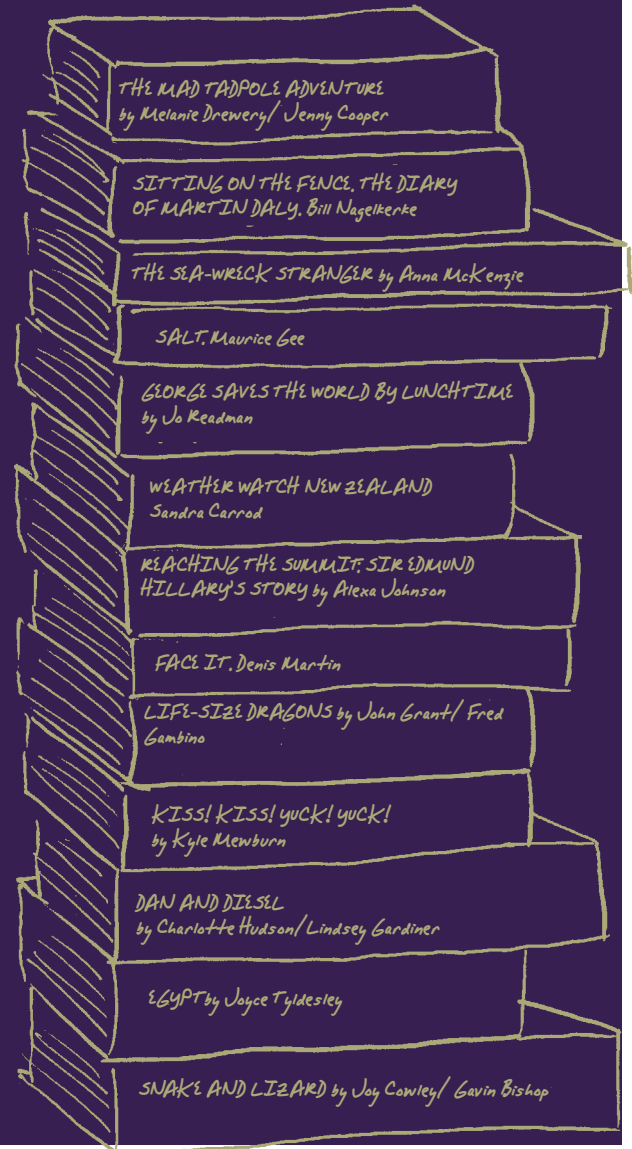 THE MAD TADPOLE ADVENTURE
by Melanie Drewery/ Jenny Cooper
SITTING ON THE FENCE. THE DIARY
OF MARTIN DALY. Bill Nagelkerke
THE SEA-WRECK STRANGER by Anna McKenzie
SALT. Maurice Gee
GEORGE SAVES THE WORLD BY LUNCHTIME
by Jo Readman
WEATHER WATCH NEW ZEALAND
Sandra Carrod
REACHING THE SUMMIT: SIR EDMUND
HILLARY'S STORY by Alexa Johnson
FACE IT. Denis Martin
LIFE-SIZE DRAGONS by John Grant/ Fred
Gambino
KISS! KISS! YUCK! YUCK!
by Kyle Mewburn
DAN AND DIESEL
by Charlotte Hudson/ Lindsey Gardiner
EGYPT by Joyce Tyldesley
SNAKE AND LIZARD by Joy Cowley/ Gavin Bishop